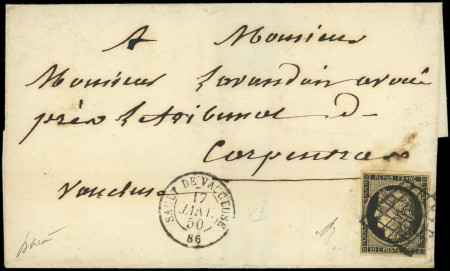 A Monsieur
Monsieur Lavandin avoué
près le tribunal de
Carpentras
Vaucluse
SAULT DE VAUCLUSE
17
JANV.
50
86
REPUB. FRANC.
20 C POSTE 20 C